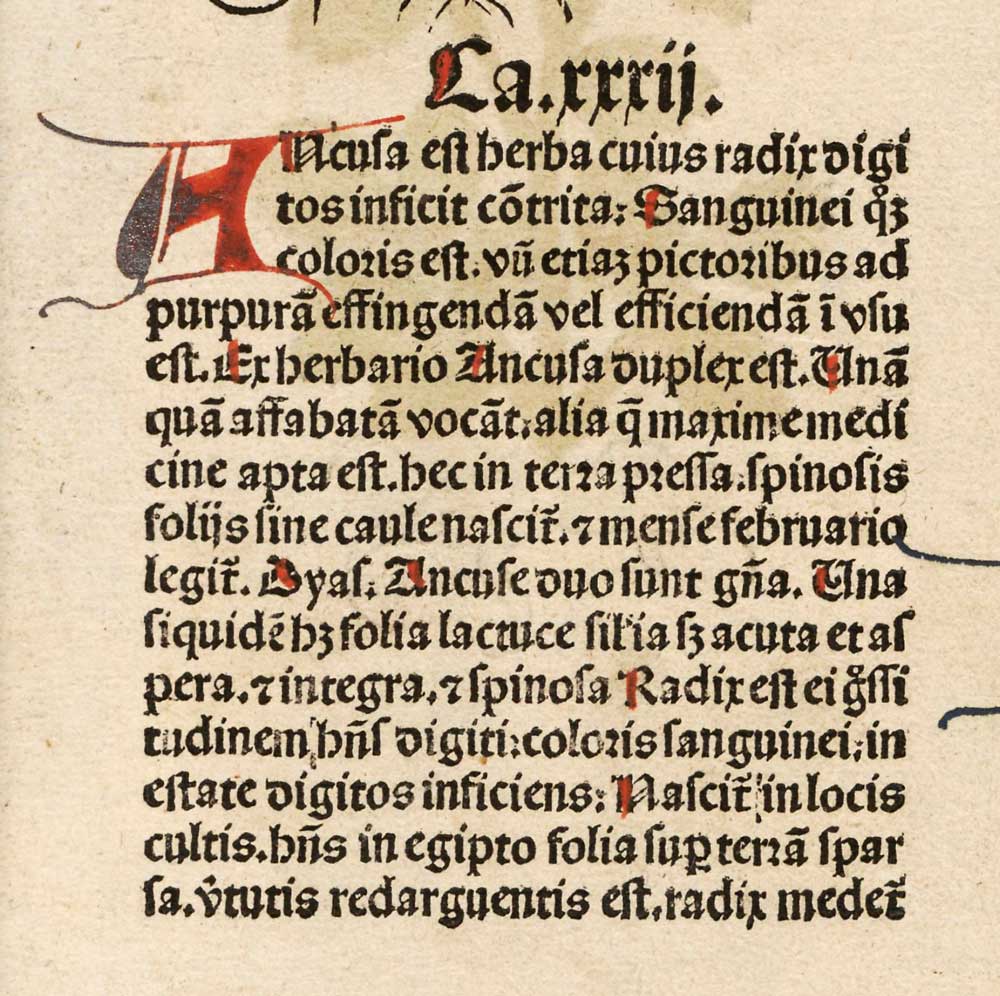 Ca.xxxij.
ANcuſa eſt herba cuius radix digi
tos inficit cōtrita: Sanguinei qͦꝫ
coloꝛis eſt. vñ etiaꝫ pictoꝛibus ad
purpurā effingendā vel efficiendā ī vſu
eſt. Ex herbario Ancuſa duplex eſt. Unā
quā affabatā vocāt. alia q̄ maxime medi
cine apta eſt. hec in terꝛa pꝛeſſa. ſpinoſis
folijs ſine caule naſcit᷑. ⁊ menſe februario
legit᷑. Dyaſ. Ancuſe duo ſunt gn̄a. Una
ſiquidē hꝫ folia lactuce ſilʼia ſꝫ acuta et aſ
pera. ⁊ integra. ⁊ ſpinoſa Radix eſt ei gͦſſi
tudinem hn̄ſ digiti: coloꝛis ſanguinei: in
eſtate digitos inficiens: Naſcit᷑ in locis
cultis. hn̄s in egipto folia ſuꝑ terꝛā ſpar
ſa. v̓tutis redarguentis eſt. radix medet᷑